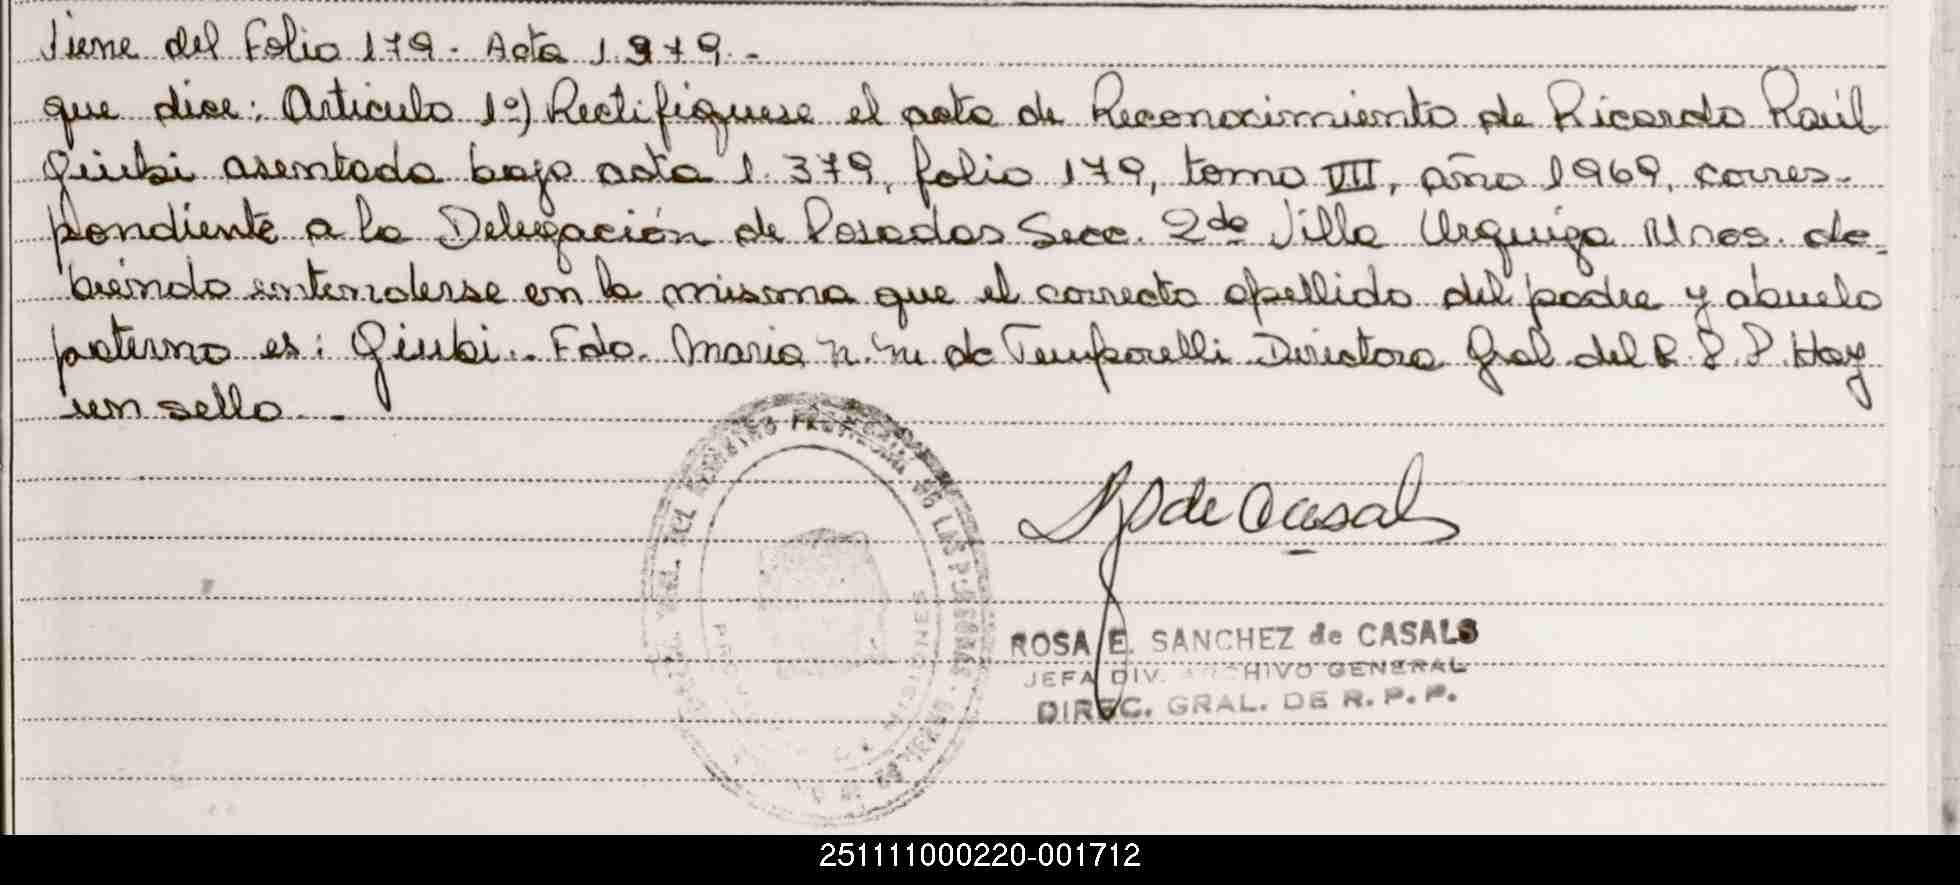 Viene del Folio 179 - Acta 1.379. -
que dice: Articulo 1º) Rectifíquese el acta de Reconocimiento de Ricardo Raúl
Giubi asentada bajo acta 1.379, folio 179, tomo VII, año 1969, corres-
pondiente a la Delegación de Posadas Secc. 2da Villa Urquiza Mnes. de-
biéndo entenderse en la misma que el correcto apellido del padre y abuelo
paterno es: Giubi.. Fdo. Maria N. M. de Temporelli Directora Gral. del R. P. P. Hay
un sello. -
DEL REGISTRO PROVINCIAL DE LAS PERSONAS
MISIONES
de Casals
ROSA E. SANCHEZ de CASALS
JEFA DIV. ARCHIVO GENERAL
DIREC. GRAL. DE R. P. P.
251111000220-001712